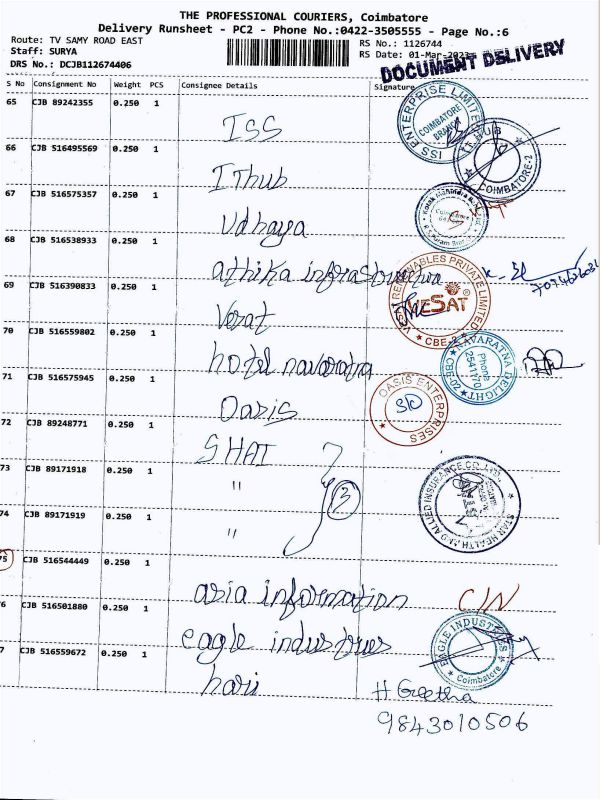 THE PROFESSIONAL COURIERS, Coimbatore
Delivery Runsheet - PC2 - Phone No.:0422-3505555 - Page No.:6
Route: TV SAMY ROAD EAST
Staff: SURYA
DRS No.: DCJB112674406
RS No.: 1126744
RS Date: 01-Mar-
DOCUMENT DELIVERY
S No Consignment No Weight PCS Consignee Details Signature
65 CJB 89242355 0.250 1 ISS
ISS ENTERPRISE LIMITED COIMBATORE BRANCH
66 CJB 516495569 0.250 1 IThub
HUB COIMBATORE-2
67 CJB 516575357 0.250 1 Udhaya
Kotak Mahindra Coimbatore
68 CJB 516538933 0.250 1 athika infrastructure
69 CJB 516390833 0.250 1 Vesat
VESAT RENEWABLES PRIVATE LIMITED VESAT ® CBE-2
70 CJB 516559802 0.250 1 hotel navaratna
NAVARATNA DELIGHT CBE-02 Phone 2541170
71 CJB 516575945 0.250 1 Oasis
OASIS ENTERPRISES
72 CJB 89248771 0.250 1 SHAI
73 CJB 89171918 0.250 1 "
3
74 CJB 89171919 0.250 1 "
STAR HEALTH AND ALLIED INSURANCE CO. LTD.
75 CJB 516544449 0.250 1 asia information C/N
6 CJB 516501880 0.250 1 eagle industries
EAGLE INDUSTRIES Coimbatore
7 CJB 516559672 0.250 1 hari
H Geetha
9843010506